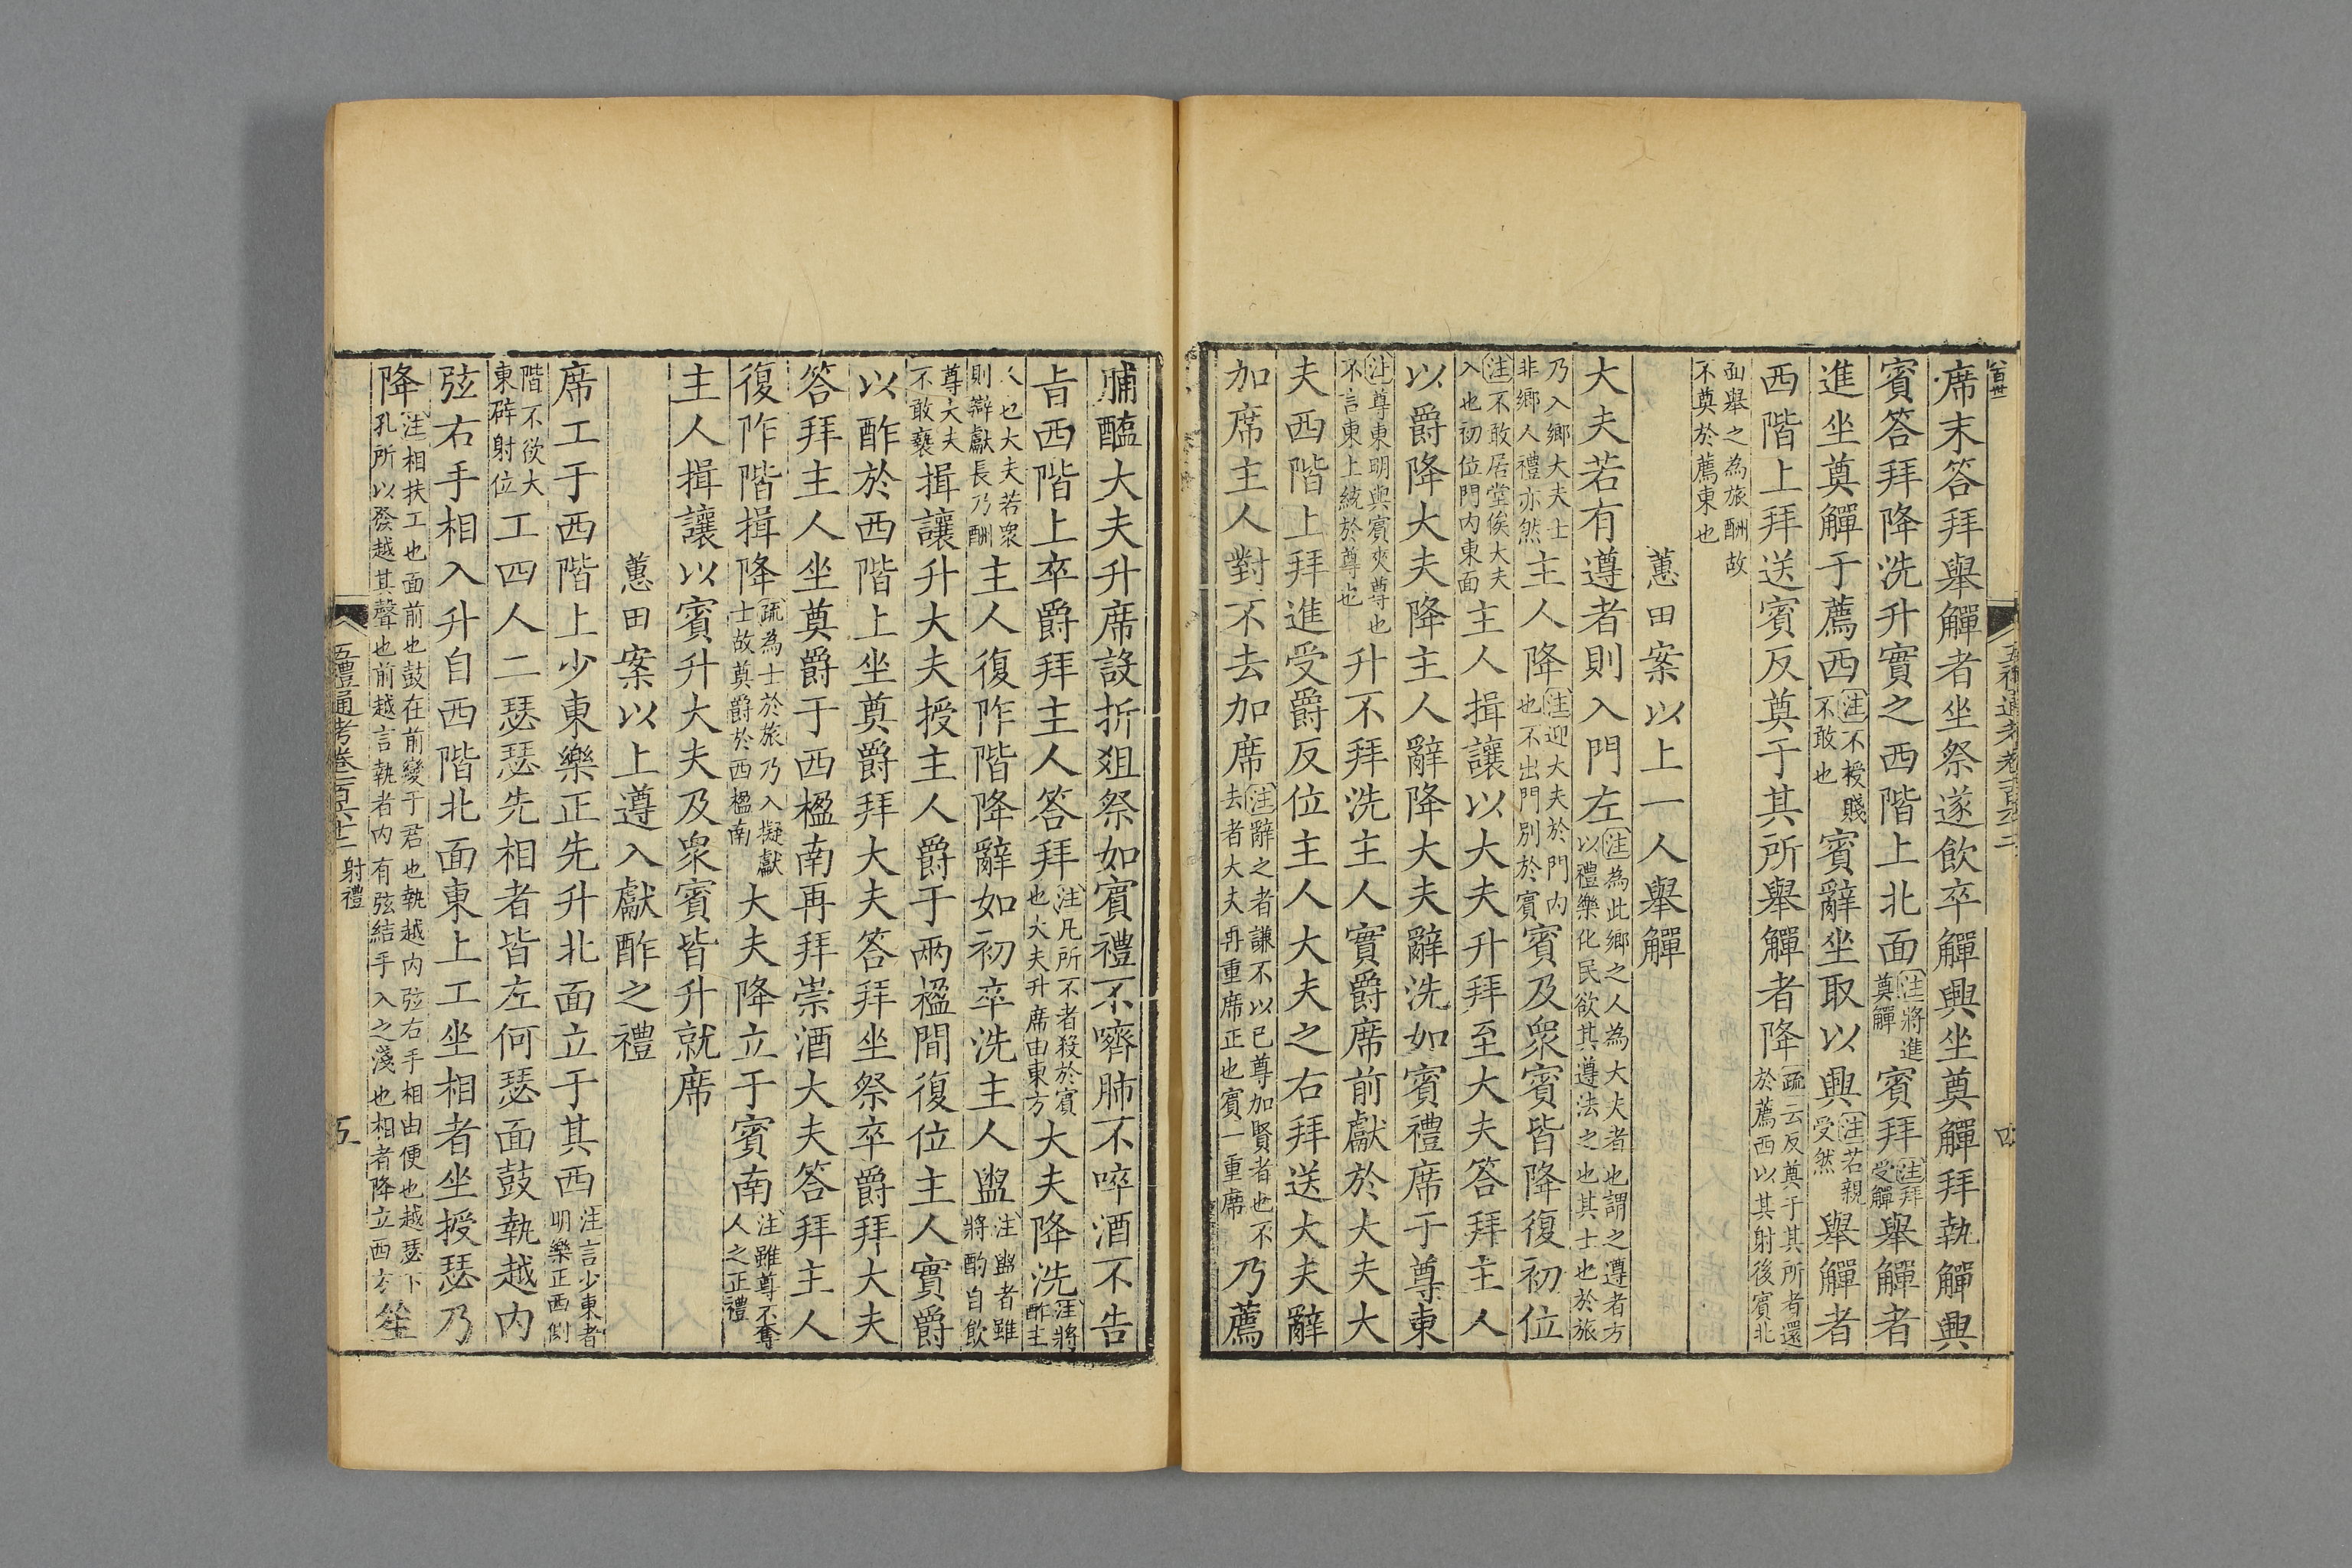 席末答拜舉觶者坐祭遂飲卒觶興坐奠觶拜執觶興
賓答拜降洗升實之西階上北面注將進奠觶賓拜注拜受觶舉觶者
進坐奠觶于薦西注不授賤不敢也賓辭坐取以興注若親受然舉觶者
西階上拜送賓反奠于其所舉觶者降疏云反奠于其所者還於薦西以其射後賓北
面舉之為旅酬故不奠於薦東也
蕙田案以上一人舉觶
大夫若有遵者則入門左注為此鄉之人為大夫者也謂之遵者方以禮樂化民欲其遵法之也其士也於旅
乃入鄉大夫士非鄉人禮亦然主人降注迎大夫於門內也不出門別於賓賓及眾賓皆降復初位
注不敢居堂俟大夫入也初位門內東面主人揖讓以大夫升拜至大夫答拜主人
以爵降大夫降主人辭降大夫辭洗如賓禮席于尊東
注尊東明與賓夾尊也不言東上統於尊也升不拜洗主人實爵席前獻於大夫大
夫西階上拜進受爵反位主人大夫之右拜送大夫辭
加席主人對不去加席注辭之者謙不以己尊加賢者也不去者大夫再重席正也賓一重席乃薦
脯醢大夫升席設折俎祭如賓禮不嚌肺不啐酒不告
旨西階上卒爵拜主人答拜注凡所不者殺於賓也大夫升席由東方大夫降洗注將酢主
人也大夫若眾則辯獻長乃酬主人復阼階降辭如初卒洗主人盥注盥者雖將酌自飲
尊大夫不敢褻揖讓升大夫授主人爵于兩楹間復位主人實爵
以酢於西階上坐奠爵拜大夫答拜坐祭卒爵拜大夫
答拜主人坐奠爵于西楹南再拜崇酒大夫答拜主人
復阼階揖降疏為士於旅乃入擬獻士故奠爵於西楹南大夫降立于賓南注雖尊不奪人之正禮
主人揖讓以賓升大夫及眾賓皆升就席
蕙田案以上遵入獻酢之禮
席工于西階上少東樂正先升北面立于其西注言少東者明樂正西側
階不欲大東辟射位工四人二瑟瑟先相者皆左何瑟面鼓執越內
弦右手相入升自西階北面東上工坐相者坐授瑟乃
降注相扶工也面前也鼓在前變于君也執越內弦右手相由便也越瑟下孔所以發越其聲也前越言執者內有弦結手入之淺也相者降立西方笙
五禮通考卷一百六十二 射禮
五